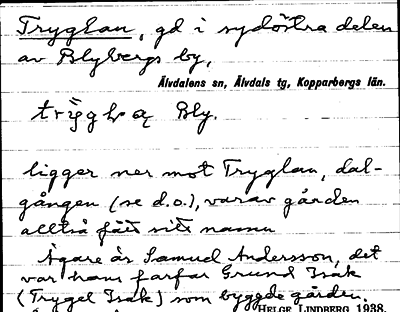 Tryglan, gd i sydöstra delen
av Blybergs by,
Älvdalens sn, Älvdals tg, Kopparbergs län.
Bly.
ligger ner mot Tryglan, dal-
gången (se d.o.), varav gården
alltså fått sitt namn
Ägare är Samuel Andersson, det
var hans farfar Grund Isak
(Trygel Isak) som byggde gården.
HELGE LINDBERG 1938.